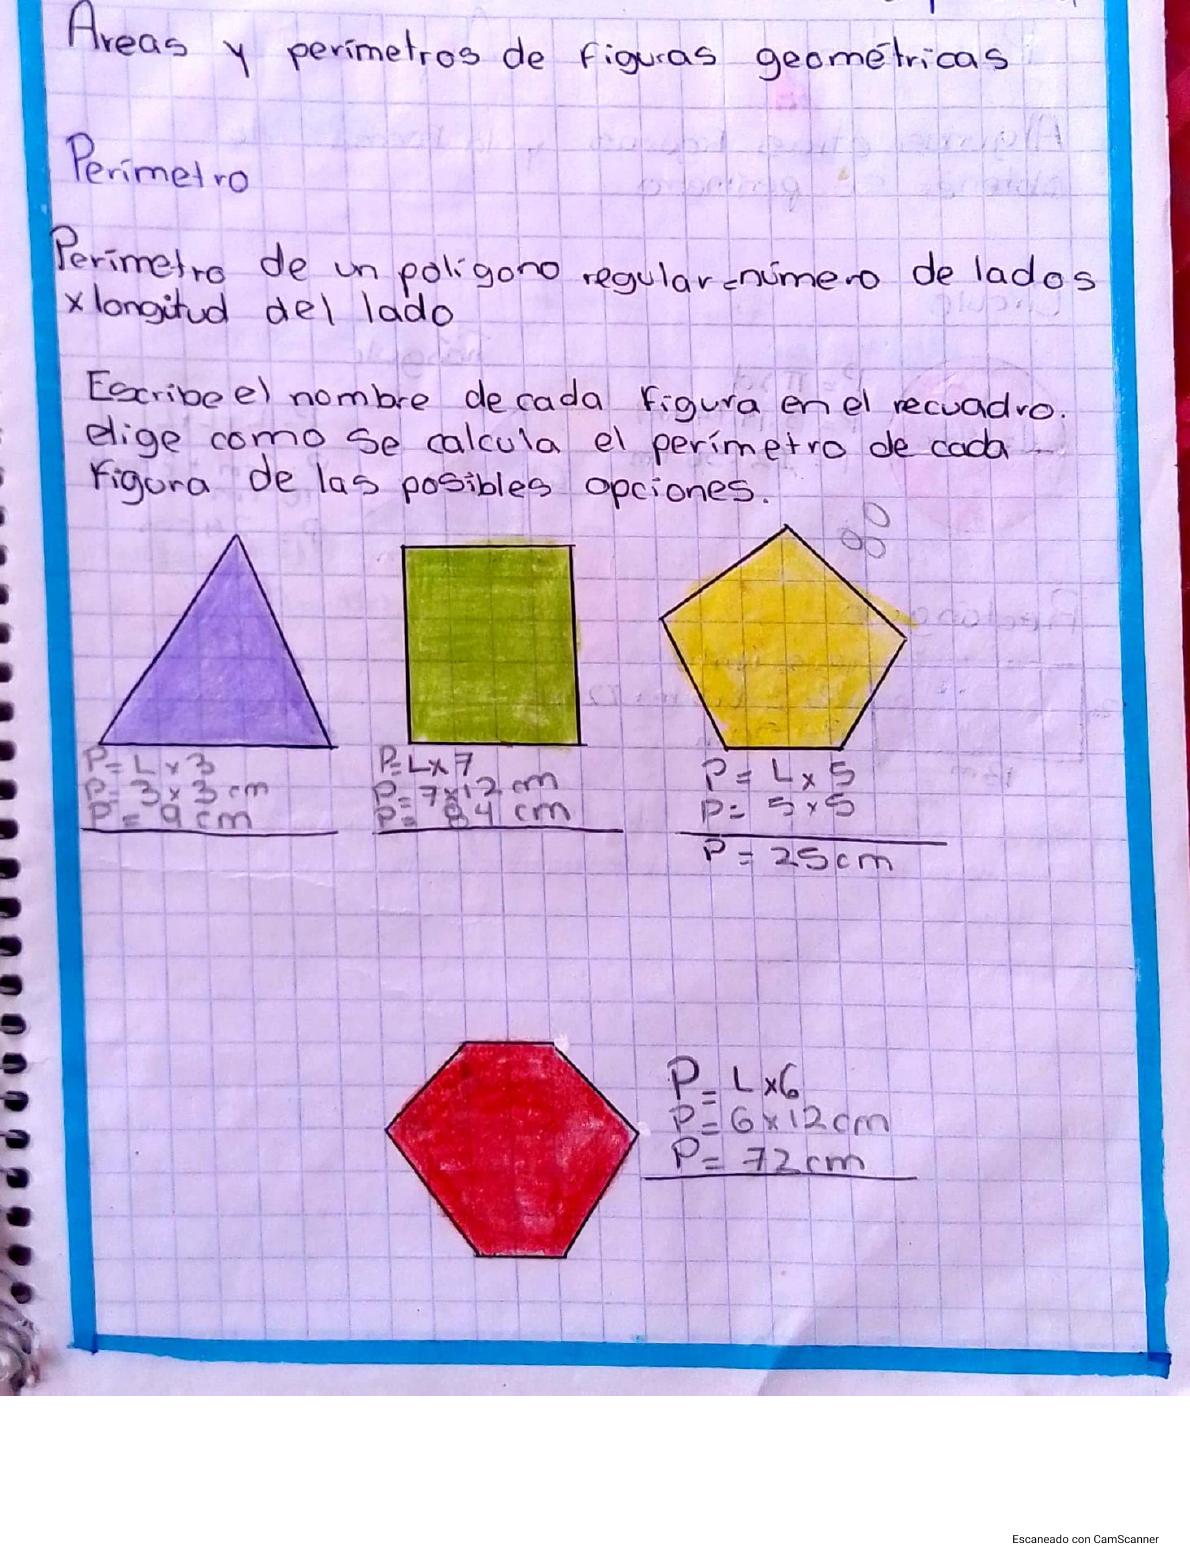 Areas y perímetros de figuras geométricas
Perímetro
Perímetro de un polígono regular=número de lados
x longitud del lado
Escribe el nombre de cada figura en el recuadro.
elige como se calcula el perímetro de cada
figura de las posibles opciones.
P= L x 3
P= 3 x 3 cm
P= 9 cm
P= L x 7
P= 7x12 cm
P= 84 cm
P= L x 5
P= 5 x 5
P= 25cm
P= L x6
P= 6x12cm
P= 72cm
Escaneado con CamScanner